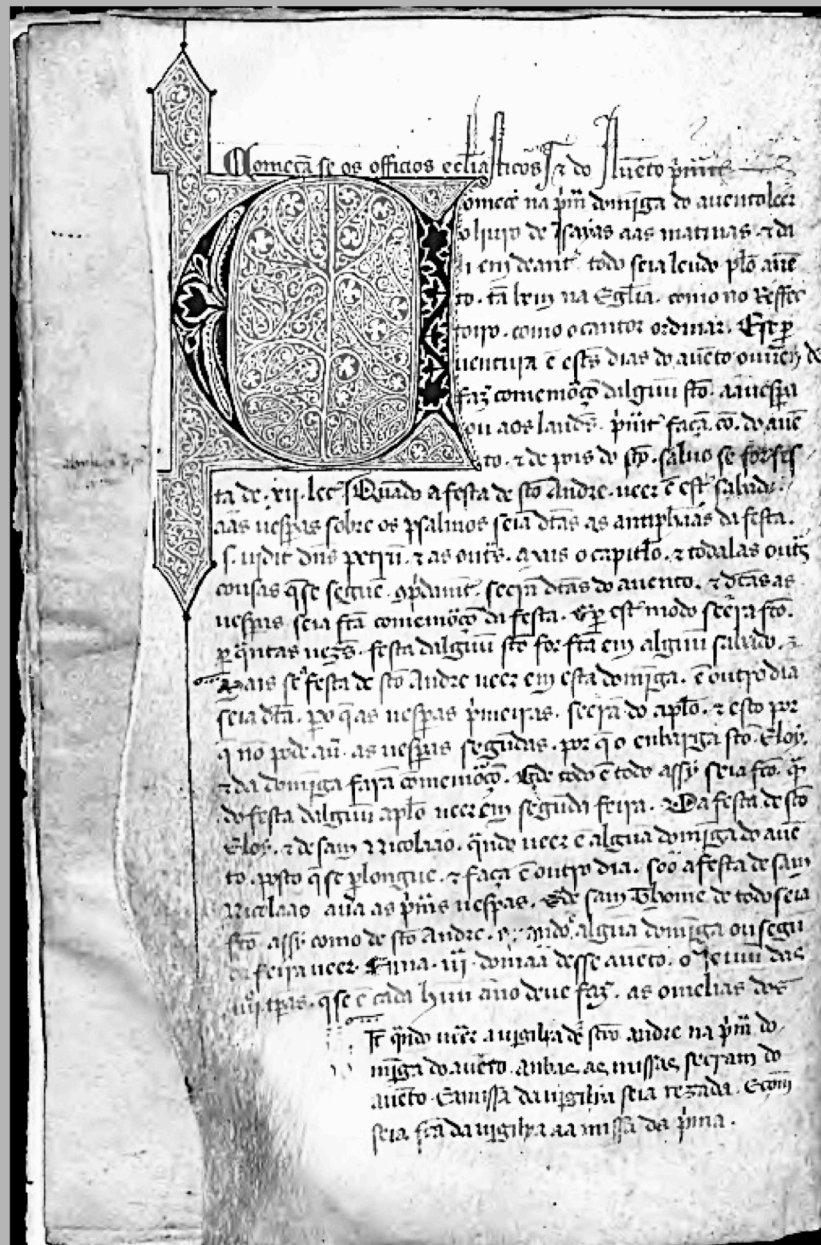 Começã se os officios eclĩasticos ⁊ do Auẽto p̃mẽt
omeçẽ na p̃m̃ domĩga do auento leer
o liuro de Isayas aas matinas ⁊ da
li em deant̃ todo seia leudo p̃lo auẽ
to . tã bem na Egl̃ia . como no Reffec
toiro . como o cantor ordinar . Esse p̱
uentura ẽ est̃s dias do auẽto
faz̃ comemõçõ dalguũ sc̃o . aauesp̃a
ou aos laudes . p̃mt̃ façã . cõ . do auẽ
to . ⁊ de pois do sc̃o . saluo se for fes
ta de . xii . lec̃ Quãdo a festa de sc̃o Andre . ueer ẽ est̃ sabado .
aas uesp̃as sobre os psalmos seia dc̃as as antiph̃nas da festa .
s . uidit dñs petrũ . ⁊ as out̃s . mais o capitl̃o . ⁊ todalas out̃s
cousas q̃ se seguẽ seerã dc̃as do auento . ⁊ dc̃as as
uesp̃as seia fc̃a comemõçõ da festa . E p̱ est̃ modo seera fc̃o .
p̱ q̃ntas uez̃s . festa dalguũ sc̃o for fc̃a em alguũ sabado .
Mais se festa de sc̃o Andre ueer em esta domĩga . ẽ outro dia
seia dc̃a . po q̃ as uesp̃as p̃meiras . seerã do apl̃o . ⁊ esto por
q̃ nõ pode au̾ . as uesp̃as segũdas . por q̃ o enbarga sc̃o Eloy .
⁊ da domĩga farã comemõçõ . E de todo ẽ todo assy seia fc̃o . q̃n
do festa dalguũ apl̃o ueer em segũda feira . Da festa de sc̃o
Eloy . ⁊ de sam Nicolaao . q̃ndo ueer ẽ algũa domĩga do auẽ
to . posto q̃ se p̱longue . ⁊ faça ẽ outro dia . soo a festa de sam
Nicolaao aũa as p̃m̃s uesp̃as . E de sam Thome de todo seia
fc̃o . assy como de sc̃o Andre . q̃ndo algũa domĩga ou segũ
da feira ueer . Enna . iii . domãa desse auẽto . o ieiuũ das
iiijº t̃pas . q̃ se ẽ cada huũ ãno deue faz̃ . as omelias dos
It̃ q̃ndo ueer a uigilya de sc̃o andre na p̃m̃ do
mĩga do auẽto . anbas as missas seeram do
auẽto . E a missa da uigilya seia rezada . E com̃
seia fc̃a da uigilya aa missa da p̃ma .